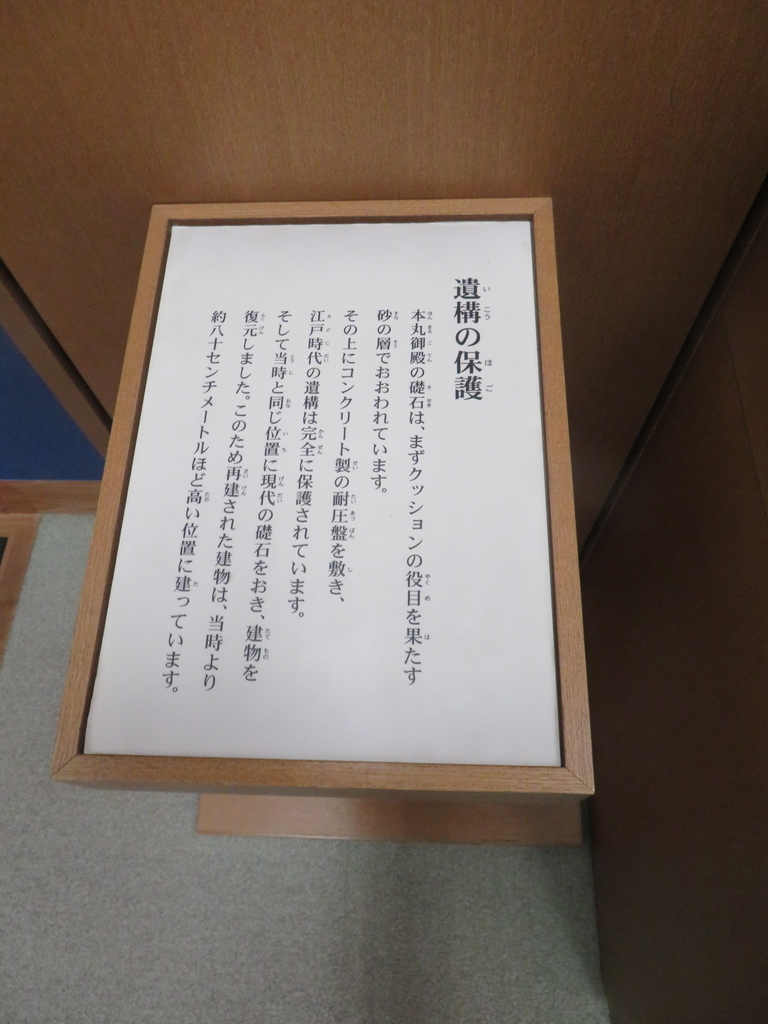 遺構の保護
本丸御殿の礎石は、まずクッションの役目を果たす
砂の層でおおわれています。
その上にコンクリート製の耐圧盤を敷き、
江戸時代の遺構は完全に保護されています。
そして当時と同じ位置に現代の礎石をおき、建物を
復元しました。このため再建された建物は、当時より
約八十センチメートルほど高い位置に建っています。